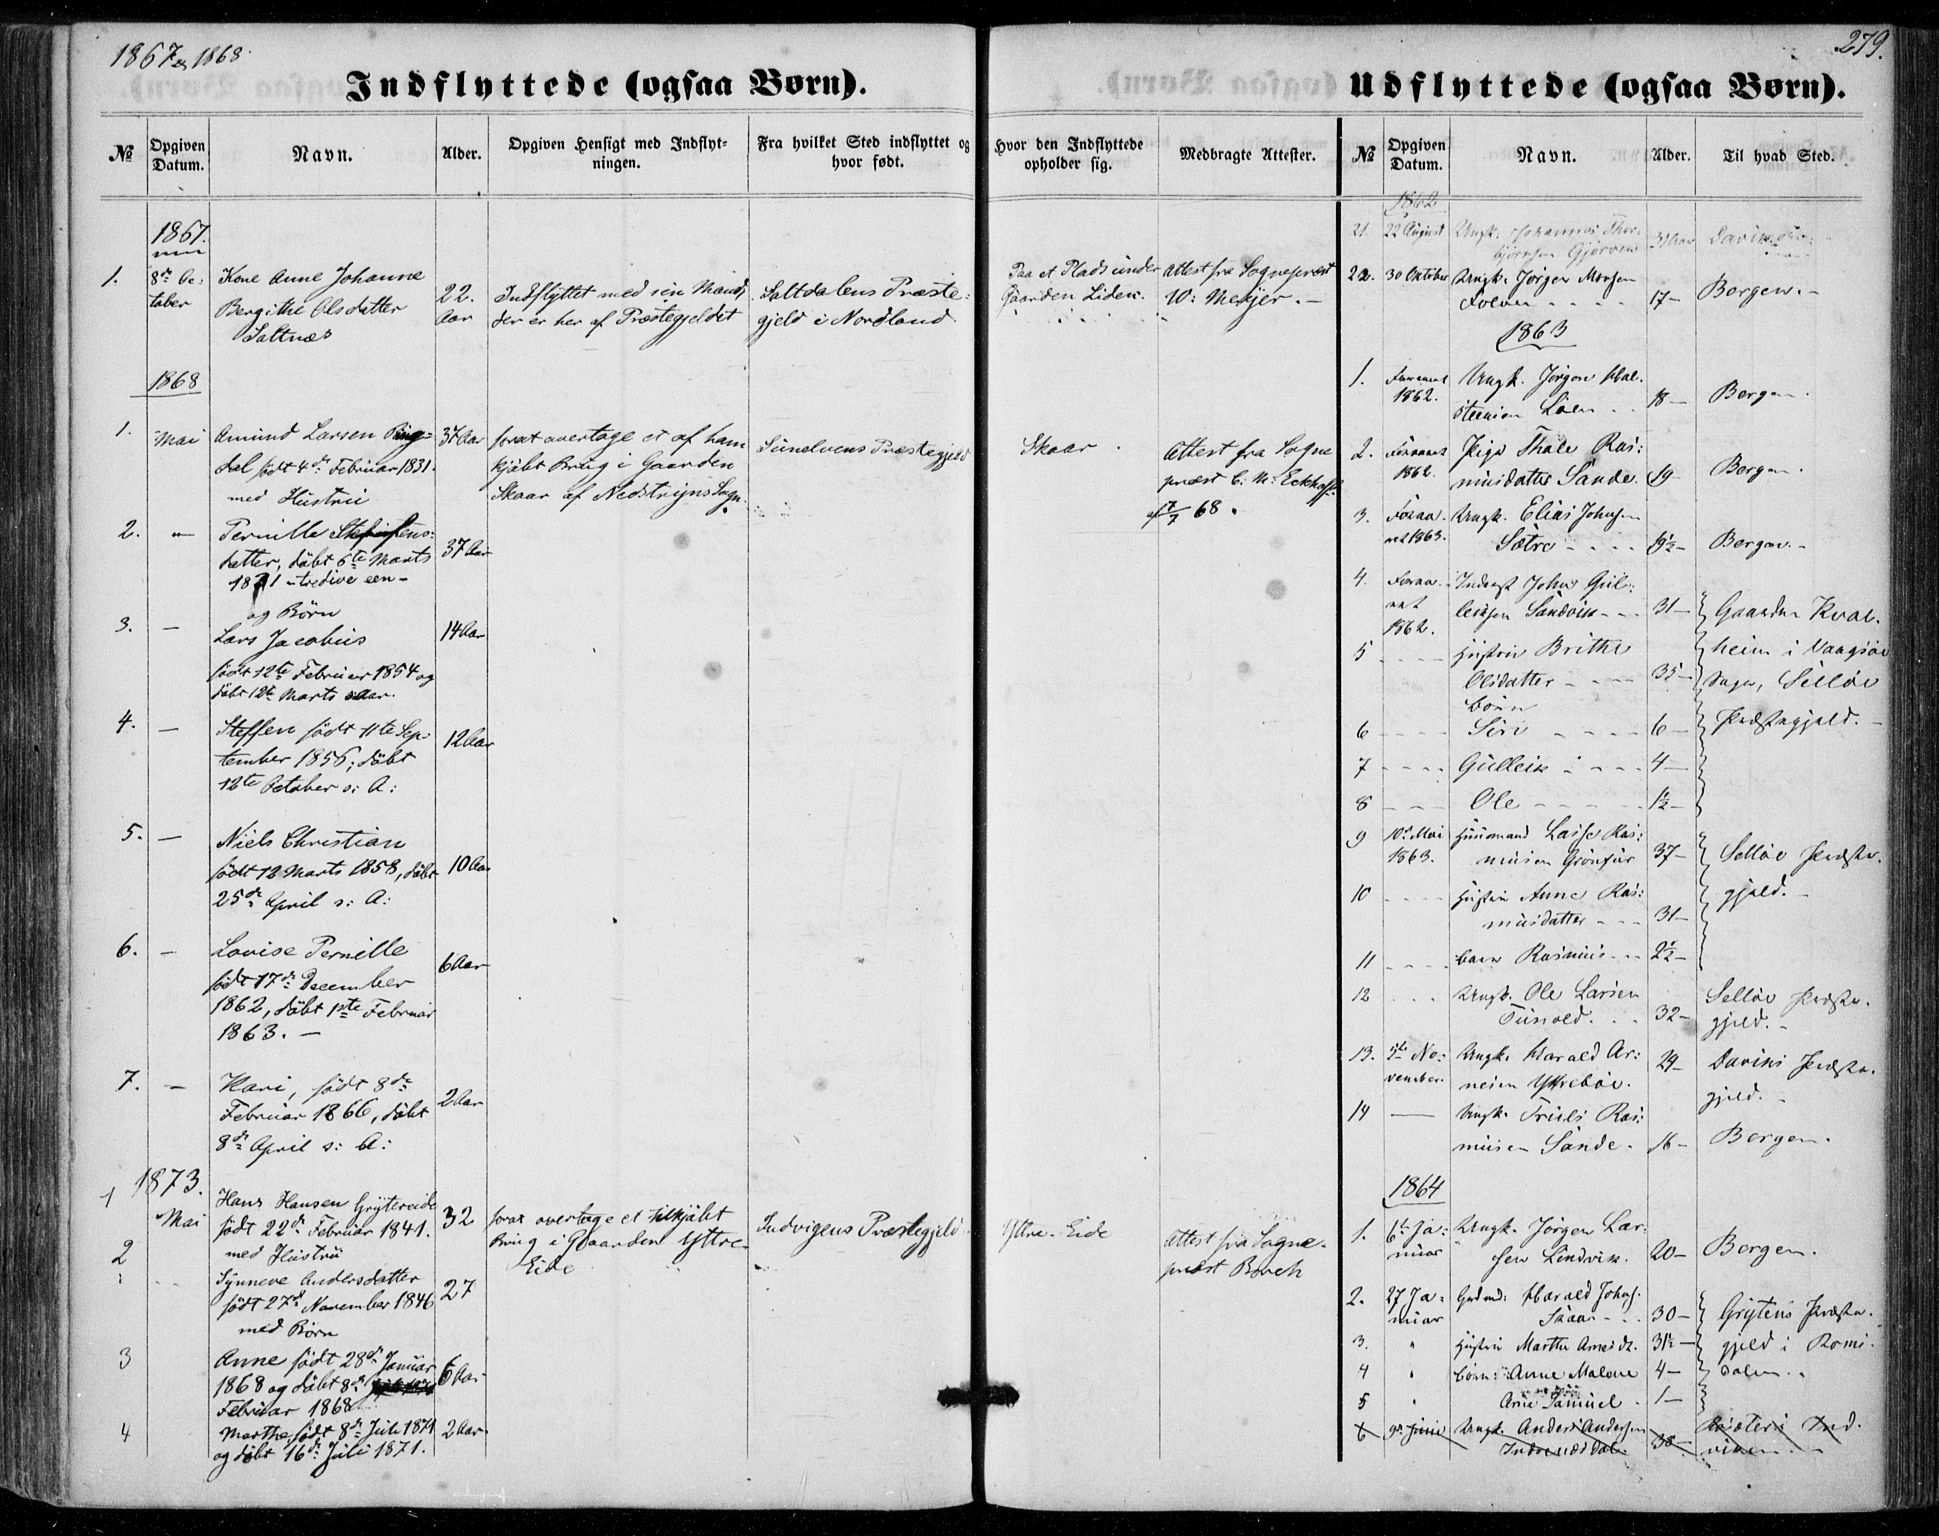 1867 og 1868.
Indflyttede (ogsaa Børn).
№
Opgiven Datum.
Navn.
Alder.
Opgiven Hensigt med Indflyt-
ningen.
Fra hvilket Sted indflyttet og
hvor født.
Hvor den Indflyttede
opholder sig.
Medbragte Attester.
1867.
1.
8de Oc-
tober
Kone Anne Johanne
Bergithe Olsdatter
Saltnæs
22.
Aar
Indflyttet med sin Mand,
der er her af Præstegjeldet
Saltdalens Præste-
gjeld i Nordland.
Paa et Plads under
Gaarden Liden.
Attest fra Sognepræst
W: Meyer. –
1868
1.
Mai
Amund Larsen Ring-
dal født 4de Februar 1831.
med Hustru
37 Aar
forat overtage et af ham
kjøbt Brug i Gaarden
Skaar af Nedstryns Sogn.
Sunelvens Præstegjeld
Skaar.
Attest fra Sogne
præst C. M. Eckhoff
af 7/7 68.
2. "
Pernille Steffens-
datter, døbt 6te Marts
1831 – tredive een –
og Børn
37 Aar
3. –
Lars Jacobus
født 12te Februar 1854 og
døbt 12te Marts s. Aar.
14 Aar
4. –
Steffen født 11te Sep-
tember 1856; døbt
12te October s: A:
12 Aar
5. –
Niels Christian
født 12 Marts 1858, døbt
25de April s: A:
10 Aar
6. –
Lovise Pernille
født 17de December
1862, døbt 1ste Februar
1863. –
6 Aar
7. –
Kari, født 8de
Februar 1866, døbt
8de April s: A:
2 Aar
1873.
1
Mai
Hans Hansen Grytereide
født 22de Februar 1841.
med Hustru
32
forat overtage et tilkjøbt
Brug i Gaarden Yttre-
Eide
Indvigens Præstegjeld.
Yttre-Eide
Attest fra Sogne-
præst Borch
2
Synneve Andersdatter
født 27de November 1846
med Børn
27
3
Anne født 28de Januar
1868 og døbt 8de
Februar 1868
6 Aar
4
Marthe født 8de Juli 1871
og døbt 16de Juli 1871.
2 Aar
279.
Udflyttede (ogsaa Børn).
№
Opgiven Datum.
Navn.
Alder.
Til hvad Sted.
1862
21. 22 August Ungk. Johannes Thor-
Gjørven
22. 30 Oktober Ungk. Jørgen
17 – Bergen. –
1863
1. Foraaret 1862. Ungk. Jørgen Hal-
steensen Loen 18 – Bergen.
2. Foraaret 1862. Pige Thale Ras-
musdatter Sande 19 – Bergen.
3. Foraar-
et 1863. Ungk. Elias Johns.
Sætre 19½ – Bergen. –
4. Foraa-
ret
1862. Inderst John Gul-
leiksen Sandvik 31 – Gaarden Kval-
heim i Vaagsøe
5 Hustru Brithe
Olsdatter 35 – Sogn, Selløe
Børn
6 Siri 6 – Præstegjeld. –
7 Gulleik 4 –
8 Ole 1½ –
9 10de Mai
1863. Huusmand Lasse Ras-
musen Grønfur 37 – Selløe Præste-
10 Hustru Anne Ras-
musdatter 31 – gjeld. –
11 barn Rasmus 2½ –
12 Ungk. Ole Larsen
Tunold. 32 – Selløe Præste-
gjeld. –
13. 5te No-
vember. Ungk. Harald Ar-
nesen Yttrebøe. 29 – Davins Præste-
gjeld. –
14 – Ungk. Truls Ras-
musen Sande. 16 – Bergen.
1864
1. 6te Ja-
nuar Ungk. Jørgen Lar-
sen Lindvik. 20 – Bergen.
2. 27 Ja-
nuar Gbrmd: Harald Johns.
Skaar 30 – Grytens Præste-
3. " Hustru Marthe Arnesdt. 31½ – gjeld i Roms-
4 " børn: Anne Malene 4 – dalen.
5 " Arne Samuel 1 –
6 9de Juni Ungk. Anders Andersen
38 – Ind-
viken. –